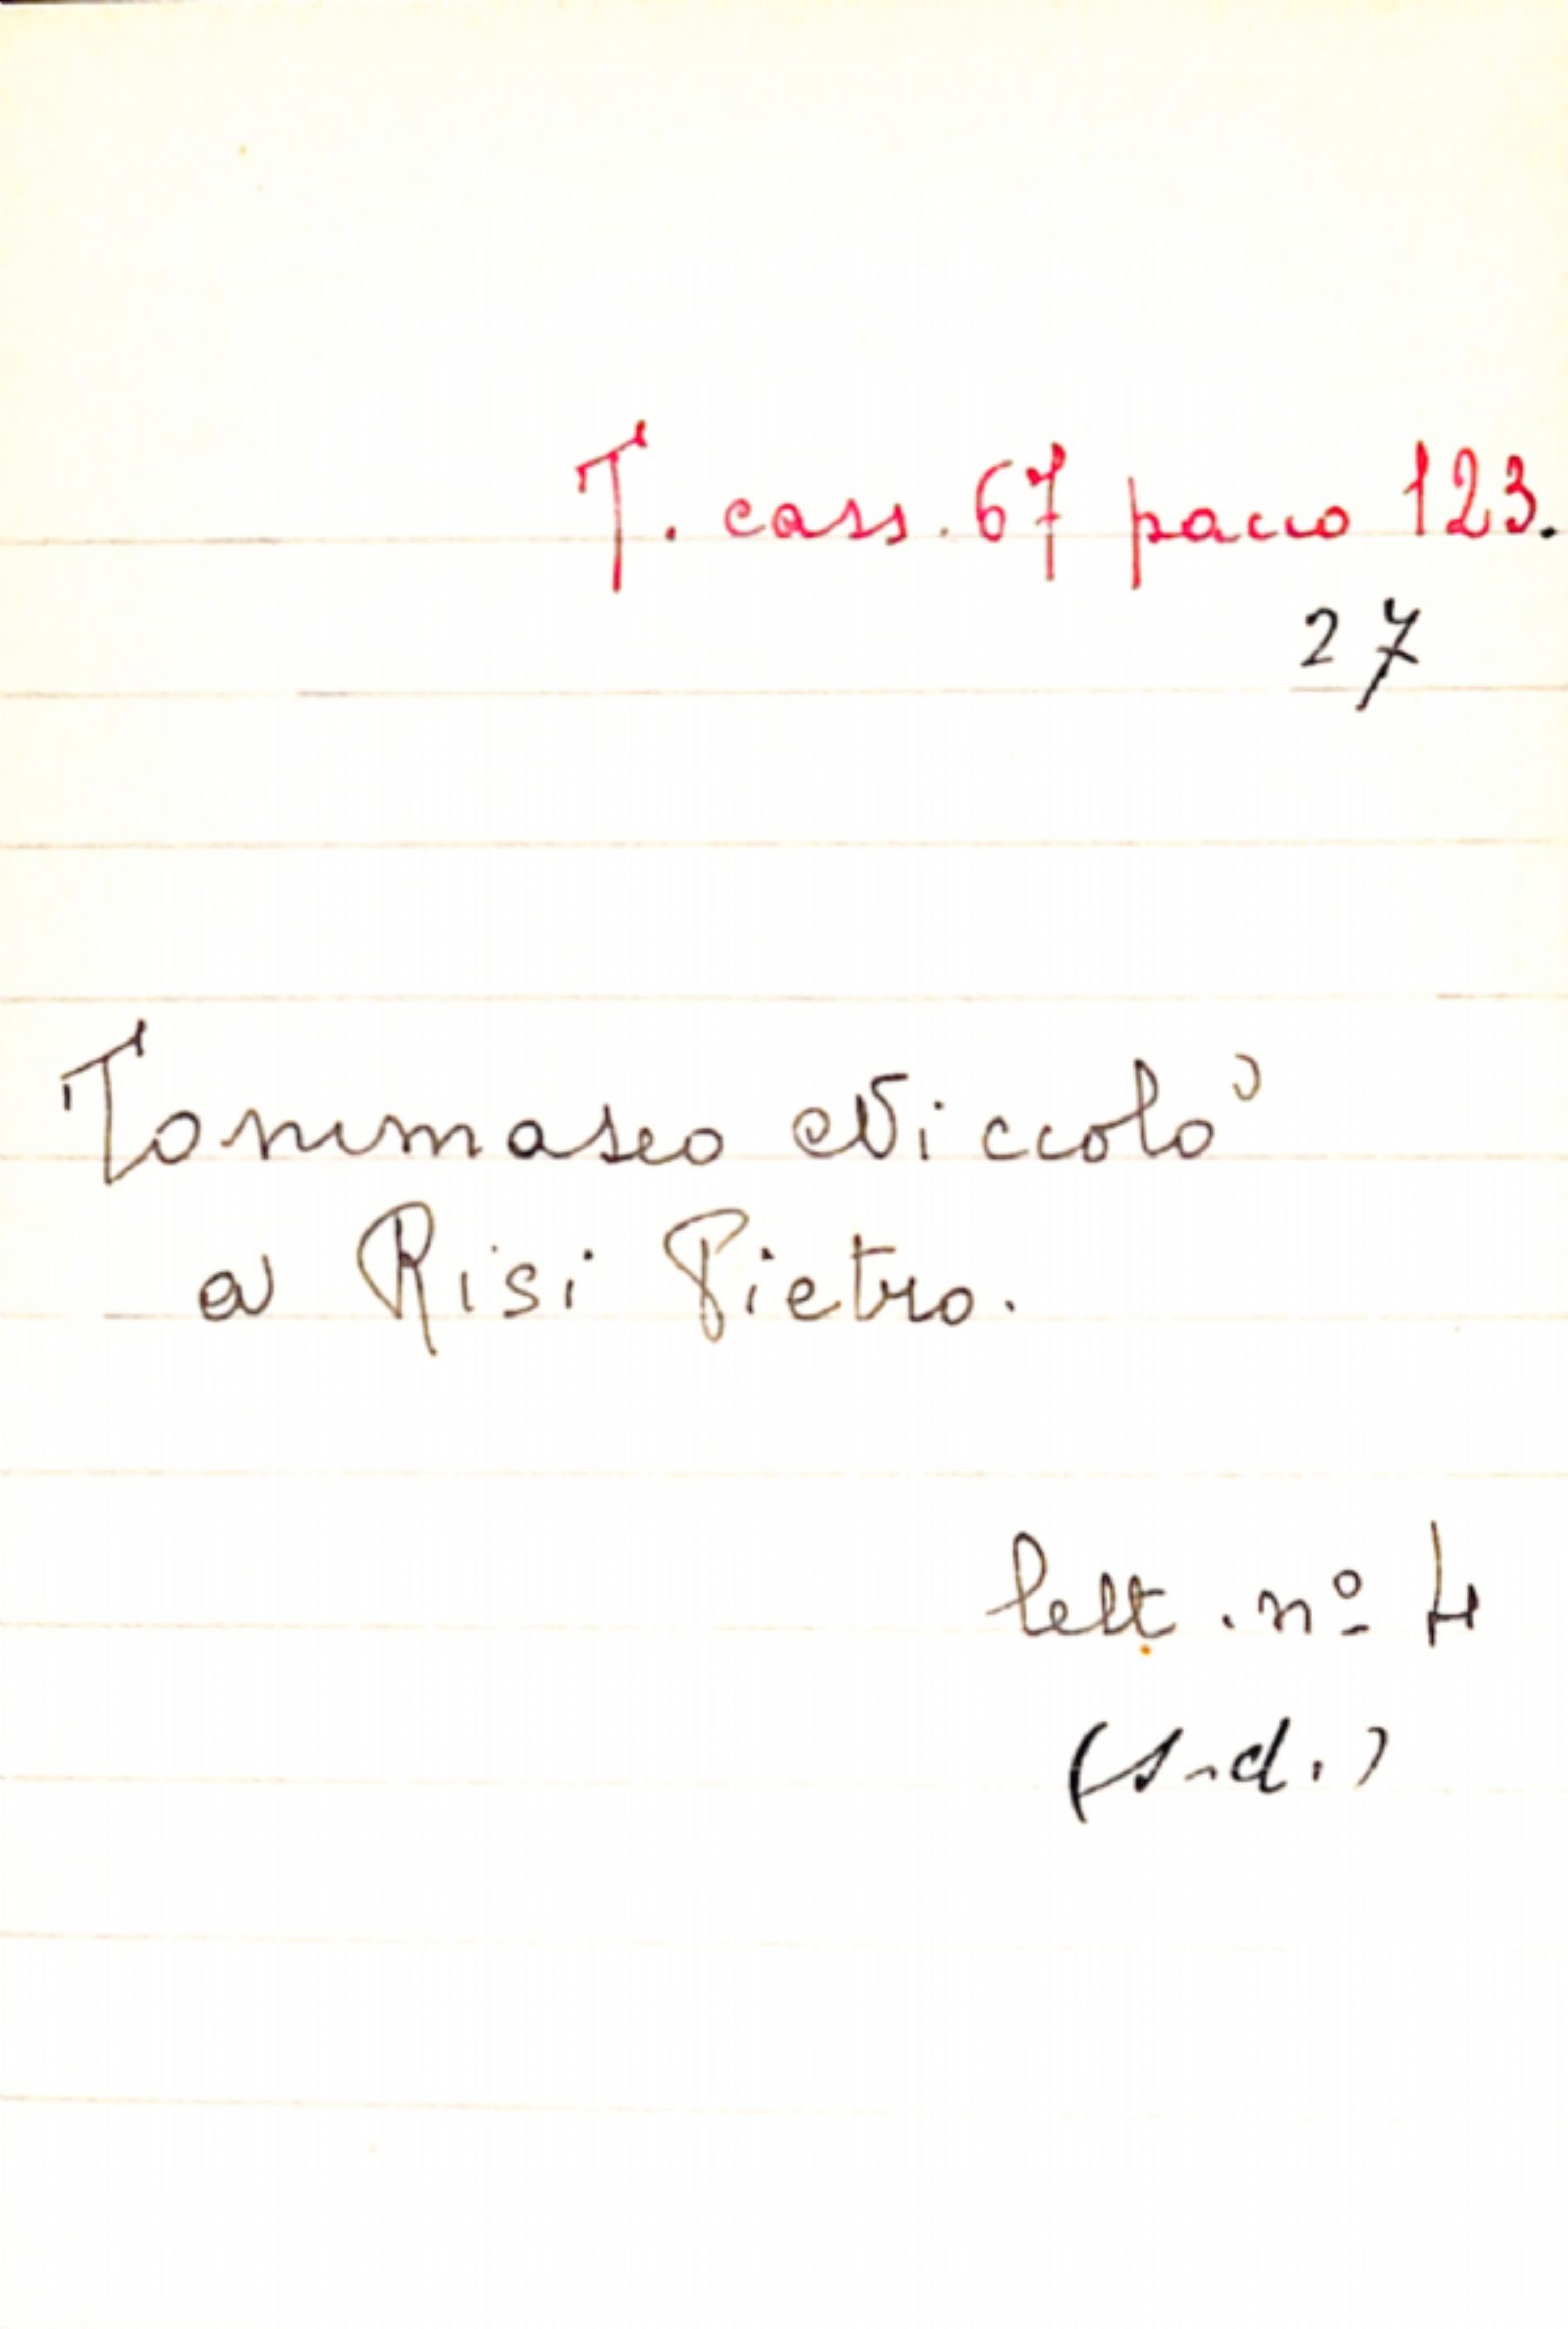 T. cass. 67 pacco 123.
27
Tommaseo Niccolò
a Risi Pietro.
lett. nº 4
(s.d.)